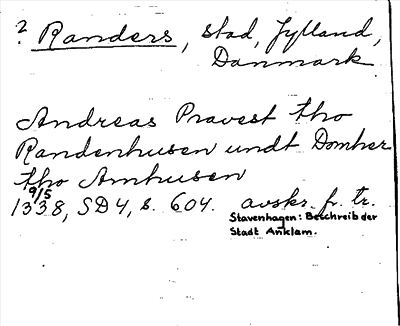 ? Randers, stad, Jylland,
Danmark
Andreas Pravest tho
Randenhusen undt Domher
tho Arnhusen
9/5
1338, SD4, s. 604. avskr. fr. tr.
Stavenhagen: Beschreib der
Stadt Anklam.